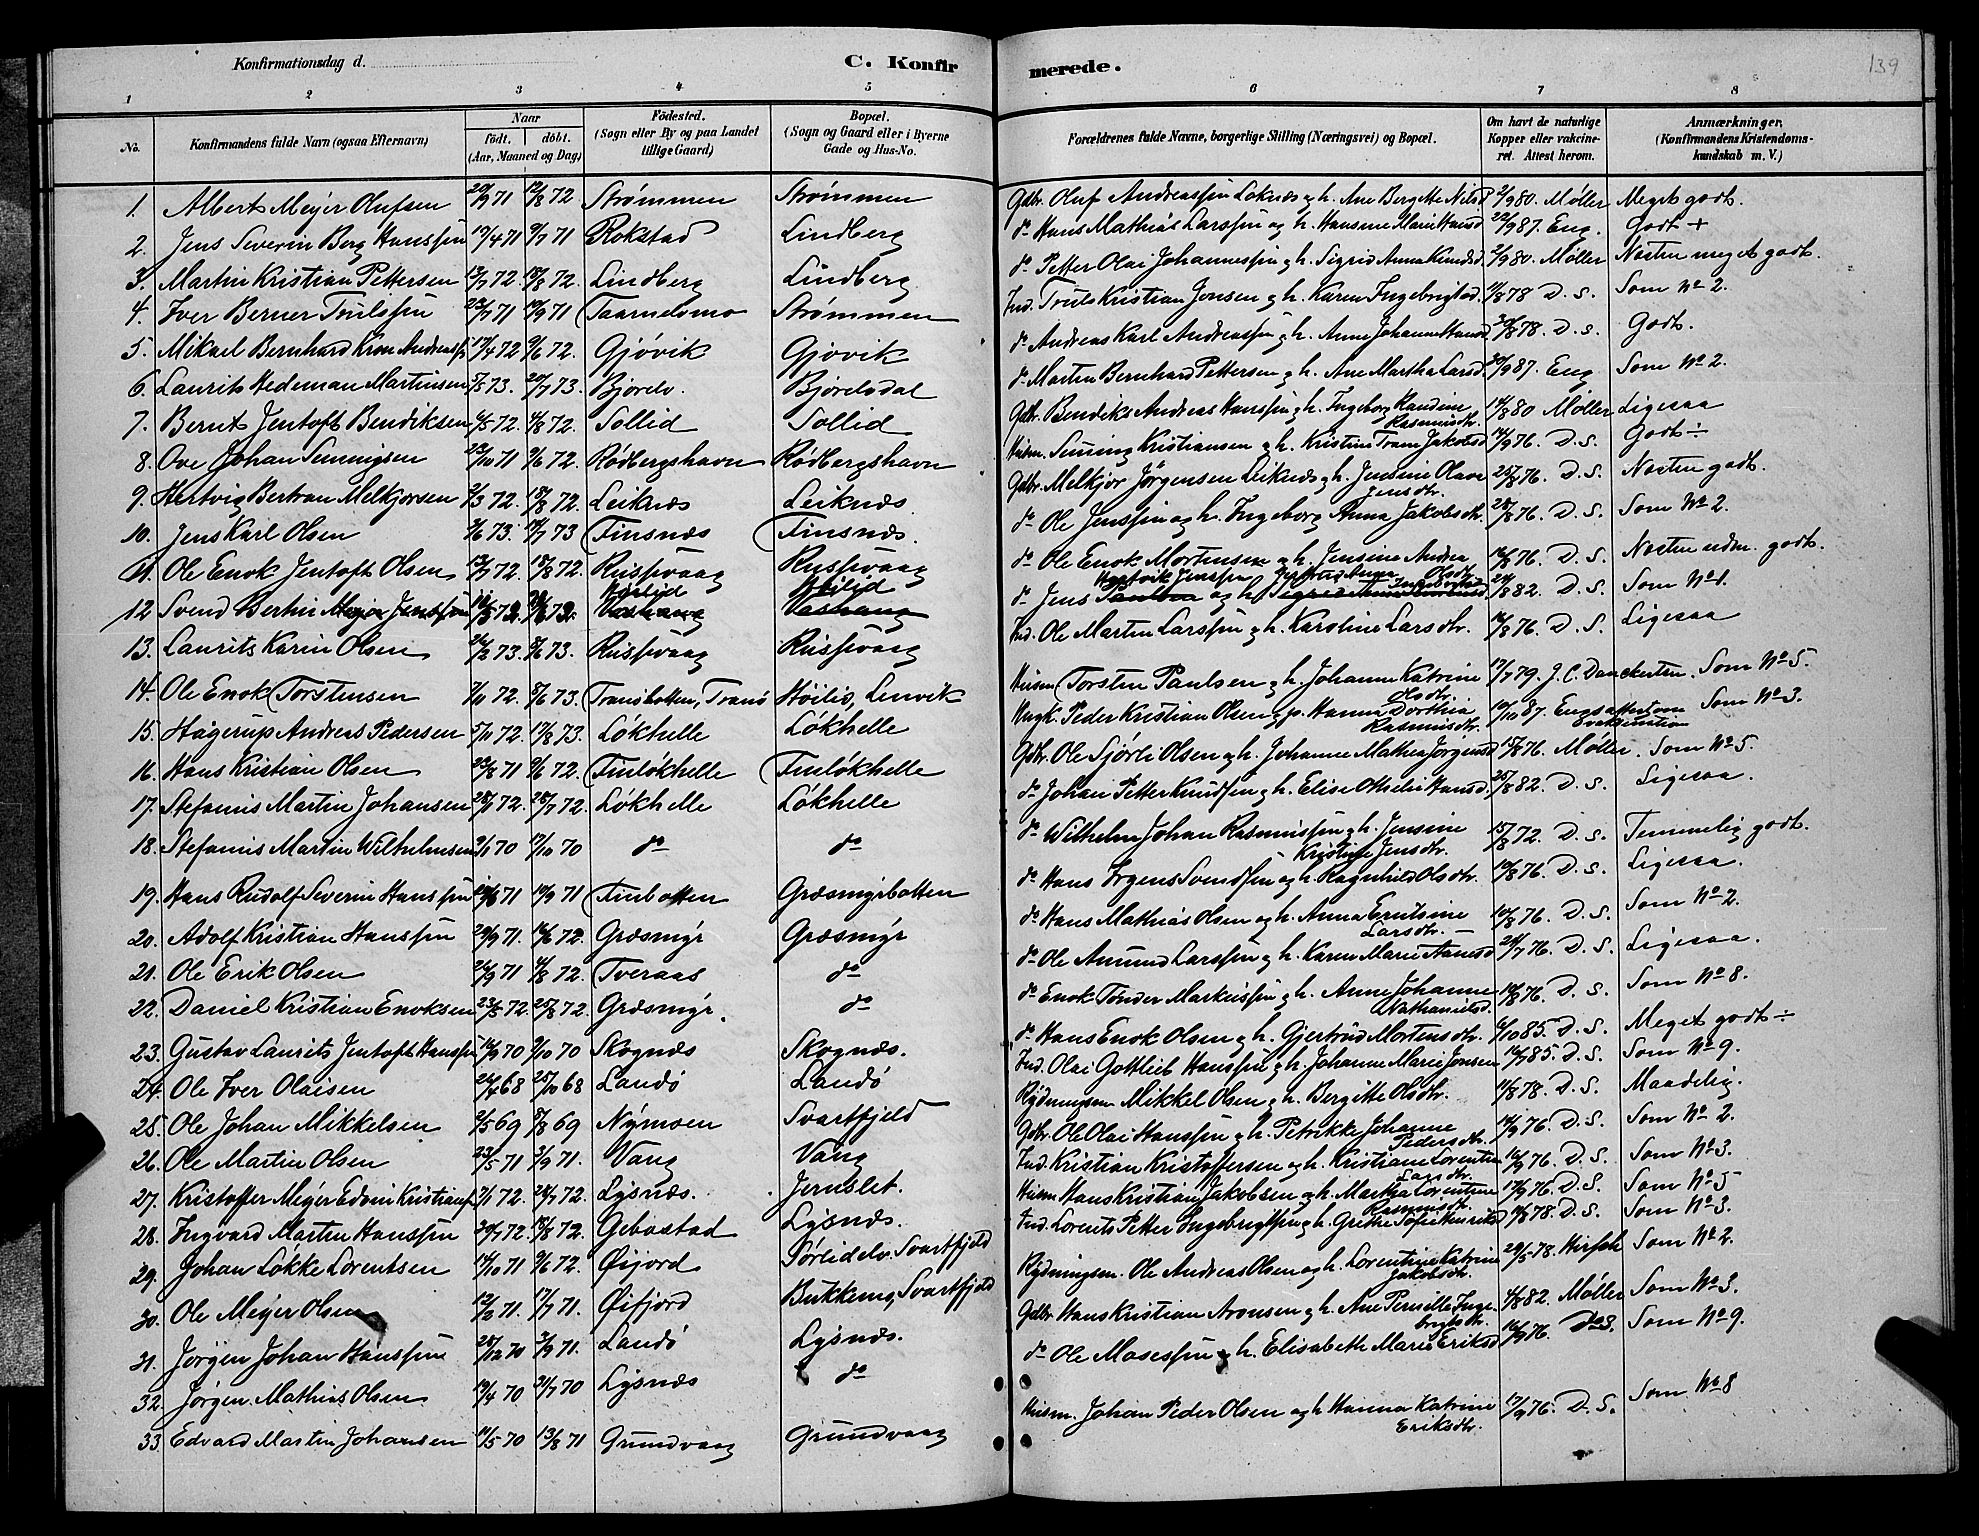 Konfirmationsdag d.
C. Konfir
merede.
139
1 2 3 4 5 6 7 8
No.
Konfirmandens fulde Navn (ogsaa Efternavn)
Naar
født. døbt.
(Aar, Maaned og Dag)
Fødested.
(Sogn eller By og paa Landet
tillige Gaard)
Bopæl.
(Sogn og Gaard eller i Byerne
Gade og Hus-No.
Forældrenes fulde Navne, borgerlige Stilling (Næringsvei) og Bopæl.
Om havt de naturlige
Kopper eller vakcine-
ret. Attest herom.
Anmærkninger,
(Konfirmandens Kristendoms-
kundskab m. V.)
1. Albert Meyer Olufsen 20/9 71 12/8 72 Strømmen Strømmen Gdbr. Oluf Andreassen Løknæs og h. Ane Bergitte Nilsd 2/9 80. Møller Meget godt.
2. Jens Severin Berg Hanssen 19/4 71 9/7 71 Rokstad Lindberg do Hans Mathias Larssen og h. Hansine Marie Hansd 22/9 87. Eng. Godt +
3. Martin Kristian Pettersen 13/7 72. 18/8 72. Lindberg Lindberg do Petter Olai Johannessen og h. Sigrid Anna Knudsd. 2/9 80. Møller Næsten meget godt.
4. Iver Berner Trulssen 22/7 71 10/9 71 Taarnelvmo Strømmen Ind. Truls Kristian Jensen og h. Karen Ingebrigtsd. 11/8 78 D. S. Som No 2.
5. Mikael Bernhard Kron Andreass. 17/4 72 9/6 72. Gjøvik Gjøvik do Andreas Karl Andreassen og h. Anne Johanna Hansd 30/8 78. D. S. Godt.
6. Laurits Hedeman Martinsen 5/5 73. 20/7 73. Bjørelv. Bjørelvdal do Martin Bernhard Pettersen og h. Ane Martha Larsd. 30/9 87. Eng Som No 2.
7. Bernt Jentoft Bendiksen 4/5 72. 4/8 72. Sollid Sollid Gdbr. Bendiks Andreas Hanssen og h. Ingeborg Randine
Rasmusdtr. 14/8 80 Møller Ligesaa
8. Ove Johan Senningsen 23/10 71 9/6 72. Rødbergshavn Rødbergshavn Husm. Senning Kristiansen og h. Kristine Trane Jakobsd 14/9 76. D. S. Godt ÷
9. Hertvig Bertran Melkjorsen 3/3 72. 18/8 72. Leiknæs Leiknæs. Gdbr. Melkjør Jørgensen Leiknæs og h. Jensine Olava
Jensdtr. 25/8 76. D. S. Næsten godt.
10. Jens Karl Olsen 3/6 73. 17/7 73 Finsnæs Finsnæs. do Ole Jenssen og h. Ingeborg Anna Jakobsdtr. 25/8 76. D. S. Som No 2.
11. Ole Enok Jentoft Olsen 13/7 72. 18/8 72. Russevaag Russevaag do Ole Enok Mortensen og h. Jensine Andrea
Olsdtr. 16/8 76. D. S. Næsten udm. godt.
12 Svend Bertin Meyer Jenssen Høilid Høilid
do Jens Hartvik Jenssen og h. 24/8 82. D. S. Som No 1.
13. Laurits Karin Olsen 26/2 73. 8/6 73. Russevaag Russevaag Ind. Ole Martin Larssen og h. Karoline Larsdtr. 16/8 76. D. S. Ligesaa
14. Ole Enok Torstensen 7/11 72. 8/6 73. Tranøbotten, Tranø Høilid, Lenvik Husm Torsten Paulsen og h. Johanna Katrine
Olsdtr. 17/7 79. J. C. Danckertsen. Som No 5.
15. Hagerup Andreas Pedersen 5/11 72. 17/8 73. Løkhelle Løkhelle Ungk. Peder Kristian Olsen og p. Hanna Dorthea
Rasmusdtr. 10/10 87. Engs attest om
vaksination Som No 3.
16. Hans Kristian Olsen 23/8 71 9/6 72. Finløkhelle Finløkhelle Gdbr. Ole Sjørle Olsen og h. Johanna Mathea Jørgensd 15/8 76. Møller. Som No 5.
17. Stefanus Martin Johansen 28/1 72. 28/7 72. Løkhelle Løkhelle do Johan Petter Knudsen og h. Elise Ottelie Hansd. 25/8 82. D. S. Ligesaa.
18. Stefanus Martin Wilhelmsen 2/1 70 17/10 70 do do do Wilhelm Johan Rasmussen og h. Jensine
Kristine Jensdtr. 15/8 72. D. S. Temmelig godt.
19. Hans Rudolf Severin Hanssen 10/9 71 Finbotten Græsmyrbotten do Hans Ørgens Svendsen og h. Ragnhild Olsdtr. 10/8 76. D. S. Ligesaa.
20. Adolf Kristian Hanssen 29/9 71. 16/6 72. Græsmyr Græsmyr do Hans Mathias Olsen og h. Anna Erntsine
Larsdtr. 10/8 76. D. S. Som No 2.
21. Ole Erik Olsen 24/9 71 4/8 72. Tveraas do do Ole Amund Larssen og h. Karen Marie Aanesd 24/7 76. D. S. Ligesaa.
22. Daniel Kristian Enoksen 23/5 72. 25/8 72. Græsmyr. do do Enok Tønder Markussen og h. Anne Johanne
Nathanielsd. 10/8 76. D. S. Som No 8.
23. Gustav Laurits Jentoft Hanssen 16/9 70 9/10 70 Skognæs Skognæs. do Hans Enok Olsen og h. Gjertrud Mortensdtr. 6/10 85. D. S. Meget godt ÷
24. Ole Iver Olaisen 24/4 68 25/10 68 Landø Landø Ind. Olai Gottlieb Hanssen og h. Johanne Marie Jonsen 16/7 85. D. S. Som No 9.
25. Ole Johan Mikkelsen 2/5 69 8/8 69 Nymoen Svartfjeld Rydningsm. Mikkel Olsen og h. Bergitte Olsdtr. 11/8 78. D. S. Maadelig.
26. Ole Martin Olsen 23/5 71 3/9 71. Vang Vang Gdbr. Ole Olai Hanssen og h. Petrikke Johanne
Pedersdtr. 14/9 76. D. S. Som No 2.
27. Kristoffer Meyer Edvin Kristians. 7/1 72. 28/7 72. Lysnæs. Jernslet. Ind. Kristian Kristoffersen og h. Kristiane Lorentse
Larsdtr. 16/9 76. D. S. Som No 3.
28. Ingvard Martin Hanssen 30/7 72. 18/8 72. Gebostad Lysnæs. Husm Hans Kristian Jakobsen og h. Martha Lorentsen
Rasmusdtr. 17/9 76. D. S. Som No 5
29. Johan Løkke Lorentsen 14/10 71 9/6 72. Øijord Sørlidelv. Svartfjeld Ind. Lorents Petter Ingebrigtsen og h. Grethe Sofie Henriksd 10/8 78. D. S. Som No 3.
30. Ole Meyer Olsen 12/2 71. 17/7 71. Øifjord Bukkemo, Svartfjeld Rydningsm. Ole Andreas Olsen og h. Lorentine Katrine
Jakobsdtr. 29/5 78. Hirsch Som No 2.
31. Jørgen Johan Hanssen 28/12 70 3/9 71. Landø Lysnæs. Gdbr. Hans Kristian Aronsen og h. Ane Pernille Inge-
brigtsdtr. 4/8 82. Møller Som No 3.
32. Jørgen Mathias Olsen 19/4 70 31/7 70 Lysnæs do do Ole Mosessen og h. Elisabeth Marie Eriksd 16/9 76. Som No 9.
33 Edvard Martin Johansen 11/5 70 13/8 71 Grundvaag Grundvaag Husm. Johan Peder Olsen og h Hanna Katrine
Eriksdtr. 17/9 76. D. S. Som No 8